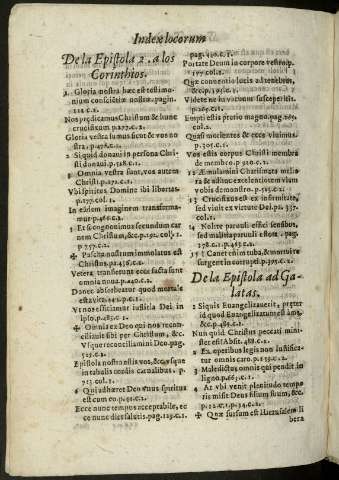 Index locorum
De la Epistola 2. a los
Corinthios.
1 Gloria nostra hæc est testimo-
nium conscientiæ nostræ. pagin.
Nos prædicamus Christum & hunc
crucifixum p.277.c.2.
Gloria vestra sumus sicut & vos no
stra. p.478.c.2.
2 Si quid donaui in persona Chri-
sti donaui. p.518.c.1.
3 Omnia vestra sunt, vos autem
Christi. p.177.c.1.
Vbi spiritus Domini ibi libertas.
p.177.col.1.
In eandem imaginem transforma-
mur. p.466.c.2.
5 Et si cognouimus secundum car
nem Christum, &c. p.51. col.1.
p.757.c.2.
✠ Pascha nostrum immolatus est
Christus. p.435.c.1.
Vetera transierunt ecce facta sunt
omnia noua. p.440.c.2.
Donec absorbeatur quod mortale
est à vita. 441.c.1.
Vt nos efficiamur iustitia Dei in
ipso. p.483.c.1.
✠ Omnia ex Deo qui nos recon-
ciliauit sibi per Christum, &c.
Vsque reconciliamini Deo. pag.
523.c.2.
Epistola nostra estis vos, &c. vsque
in tabulis cordis carnalibus. p.
713 col.1.
6 Qui adhæret Deo vnus spiritus
est cum eo. p.91.c.2.
Ecce nunc tempus acceptabile, ec
ce nunc dies salutis. pag.129.c.1.
pag.430.c.1.
Portate Deum in corpore vestro. p.
197.col.2.
Quæ conuentio lucis ad tenebras,
&c. p.195.c.1.
Videte ne in vacuum suscipiatis.
p.265.c.1.
Empti estis pretio magno. pag.269.
col.2.
Quasi morientes & ecce viuimus.
p.305.c.2.
Vos estis corpus Christi membra
de membro. p.310.c.2.
12 Æmulamini charismata melio-
ra & adhuc excellentiorem viam
vobis demonstro. p.515.c.2.
13 Crucifixus est ex infirmitate,
sed viuit ex virtute Dei. p.535.
col.1.
14 Nolite paruuli effici sensibus,
sed malitia paruuli estote. pag.
278.c.1. p.453.c.2.
15 Canet enim tuba, & mortui re
surgent incorrupti. p.395.c.2.
De la Epistola ad Ga-
latas.
1 Si quis Euangelizauerit, præter
id quod Euangelizatum est ama,
&c. p.489.c.1.
Nun quid Christus peccati mini-
ster est? Absit. 488.c.1.
2 Ex operibus legis non iustifica-
tur omnis caro. p.159.c.2.
3 Maledictus omnis qui pendit in
ligno. p.665.c.1.
4 At vbi venit plenitudo tempo
ris misit Deus filium suum, &c.
p.122.c.1. p.34.c.2.
✠ Quæ sursum est Hierusalem li
bera